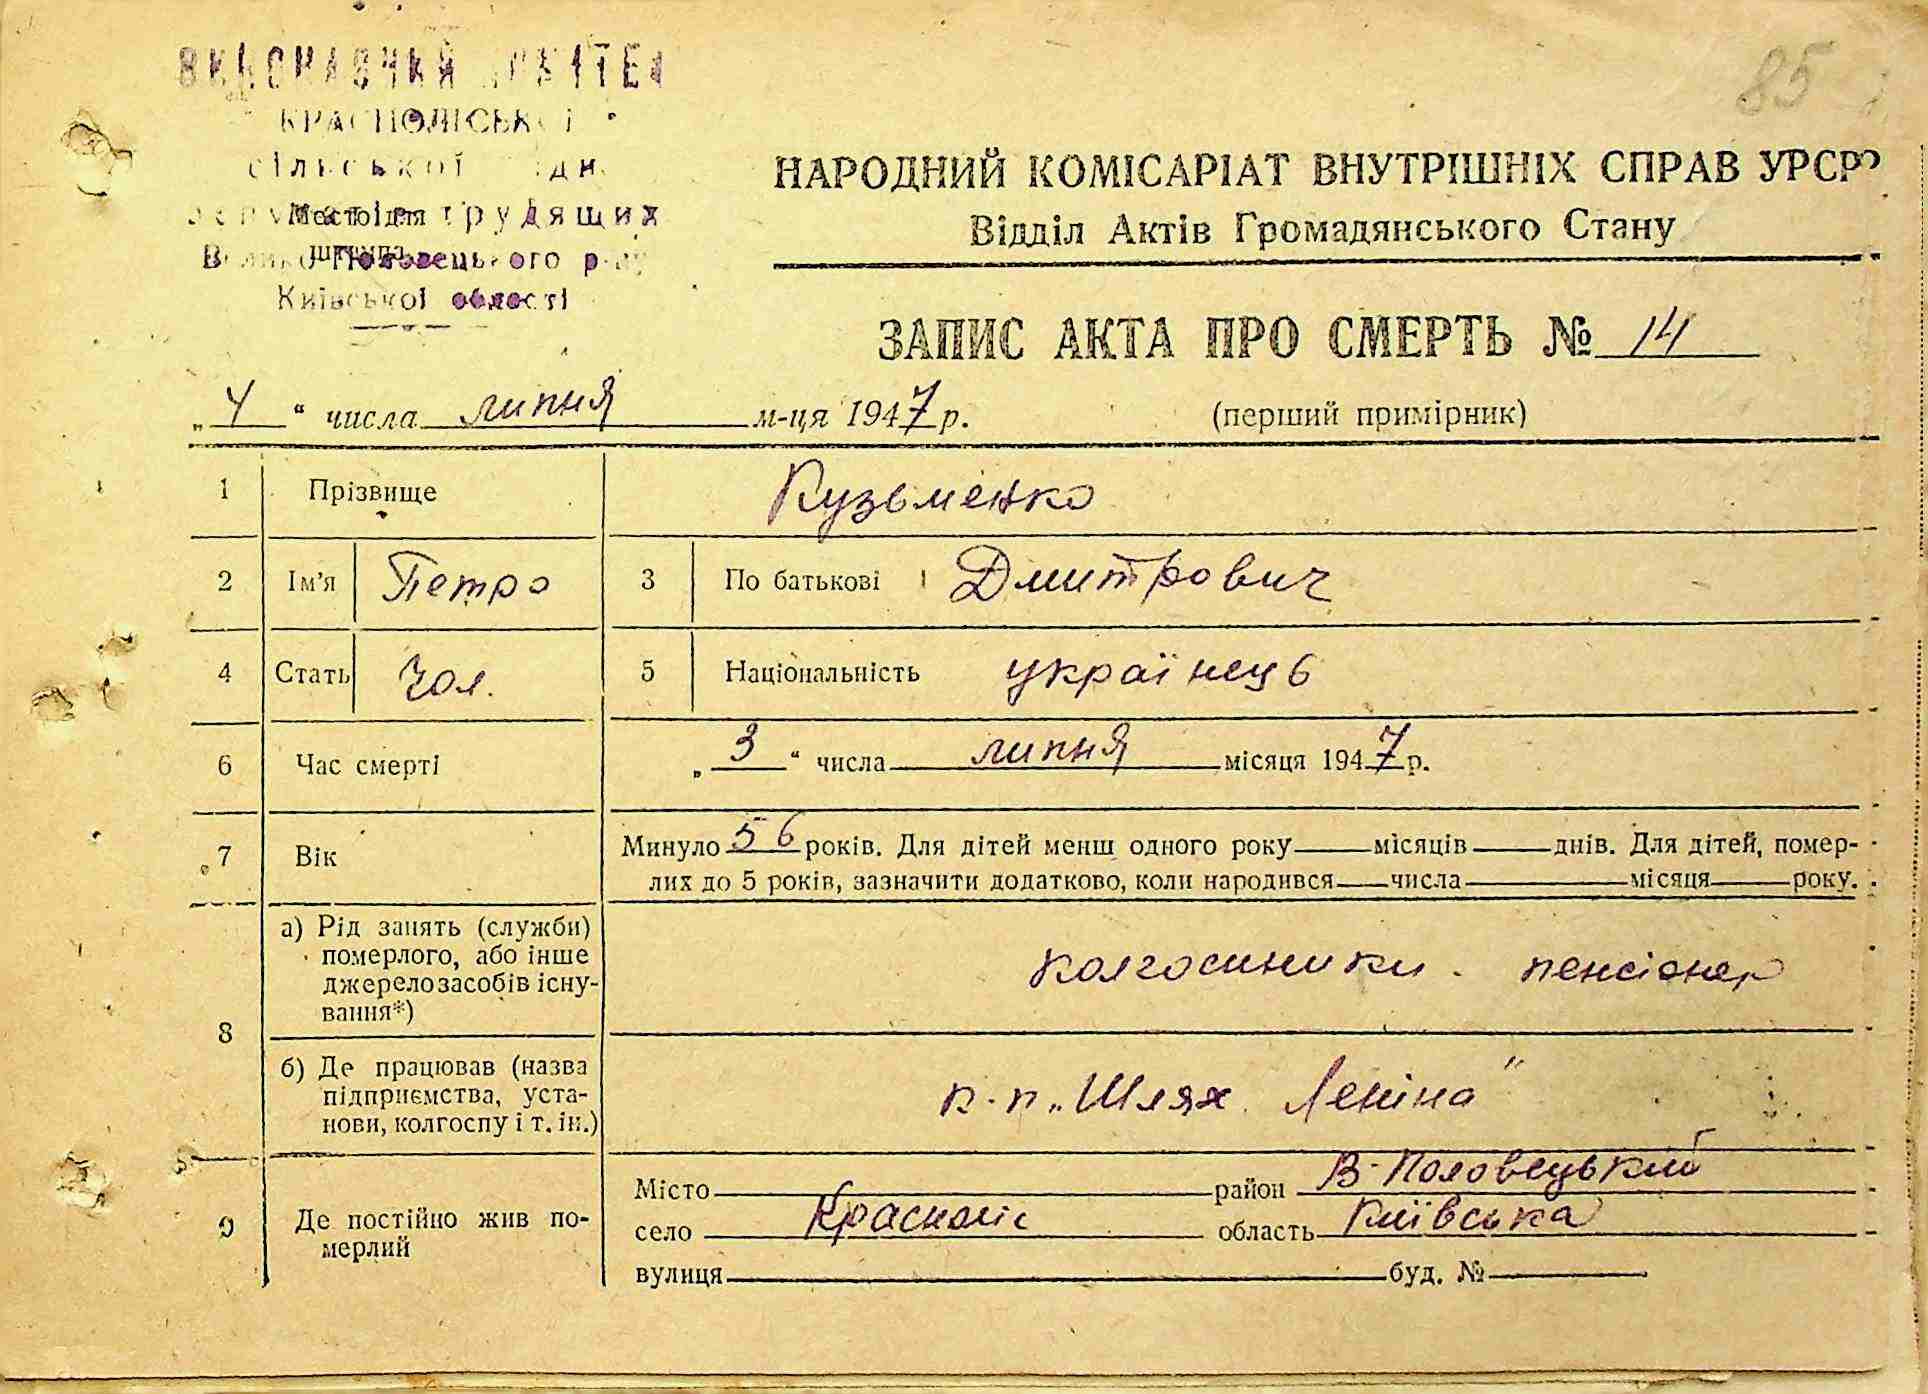 85
ВИКОНАВЧИЙ КОМІТЕТ
КРАСНОЛІСЬКОЇ
сільської
Місто для трудящих
штампа
Велико-Половецького р-ну
Київської області
НАРОДНИЙ КОМІСАРІАТ ВНУТРІШНІХ СПРАВ УРСР
Відділ Актів Громадянського Стану
ЗАПИС АКТА ПРО СМЕРТЬ № 14
„4“ числа липня м-ця 1947 р.
(перший примірник)
1 Прізвище Кузьменко
2 Ім'я Петро 3 По батькові Дмитрович
4 Стать Чол. 5 Національність українець
6 Час смерті „3“ числа липня місяця 1947 р.
7 Вік Минуло 56 років. Для дітей менш одного року місяців днів. Для дітей, помер-
лих до 5 років, зазначити додатково, коли народився числа місяця року.
8 а) Рід занять (служби)
померлого, або інше
джерело засобів існу-
вання*)
пенсіонер
б) Де працював (назва
підприємства, уста-
нови, колгоспу і т. ін.)
к-п „Шлях Леніна"
9 Де постійно жив по-
мерлий
Місто район В-Половецький
село Красноліс область Київська
вулиця буд. №